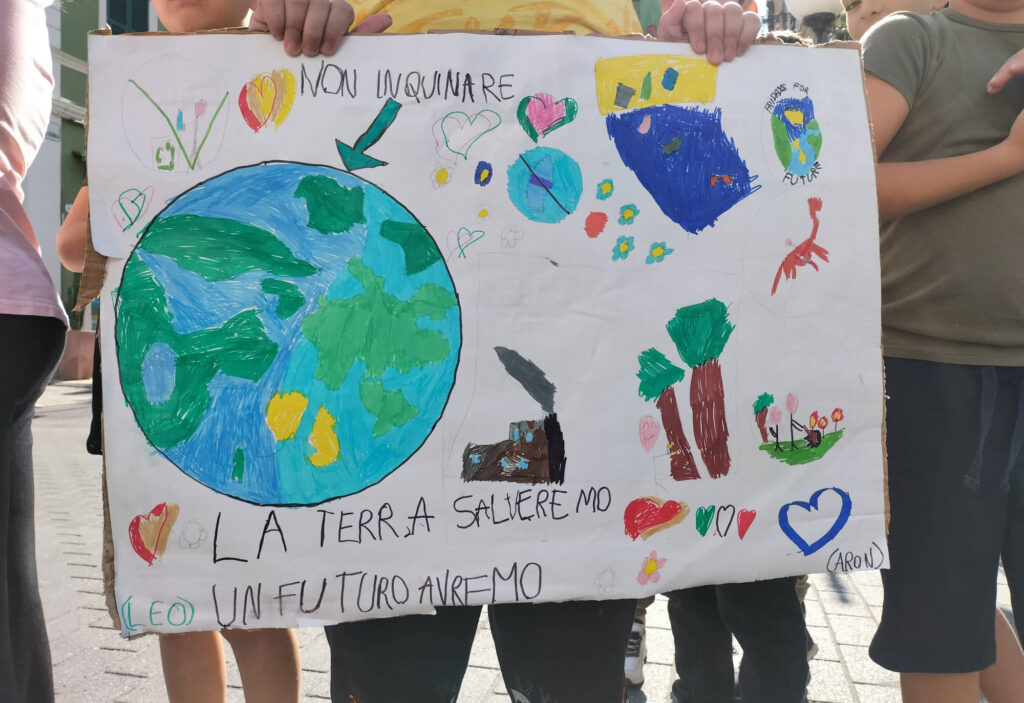 NON INQUINARE
FRIDAYS FOR
FUTURE
LA TERRA SALVEREMO
UN FUTURO AVREMO
(LEO)
(ARON)